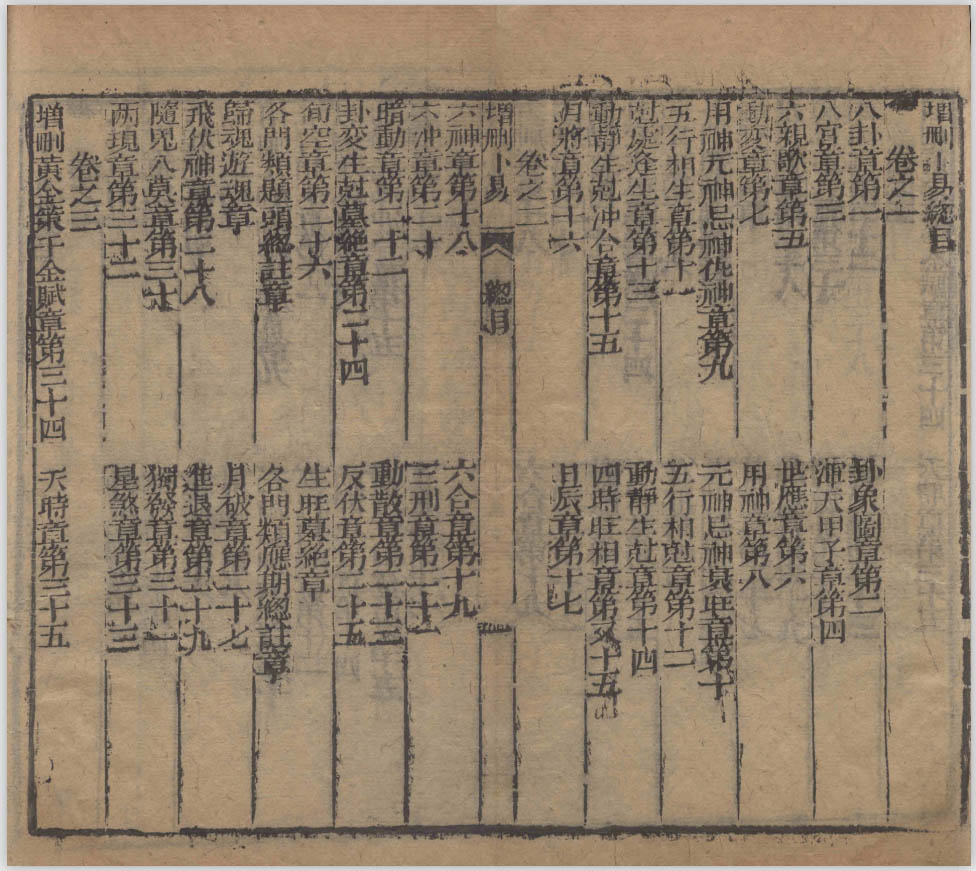 增刪卜易總目
卷之一
八卦章第一 卦象圖章第二
八宮章第三 渾天甲子章第四
六親歌章第五 世應章第六
動変章第七 用神章第八
用神元神忌神仇神章第九 元神忌神衰旺章第十
五行相生章第十一 五行相尅章第十二
尅處逢生章第十三 動靜生尅章第十四
動靜生尅冲合章第十五 四時旺相章第又十五
月將章第十六 日辰章第十七
卷之二
增刪卜易 總目
六神章第十八 六合章第十九
六冲章第二十 三刑章第二十一
暗動章第二十二 動散章第二十三
卦変生尅墓絶章第二十四 反伏章第二十五
旬空章第二十六 生旺墓絶章
各門類題頭總註章 各門類應期總註章
歸魂遊魂章 月破章第二十七
飛伏神章第二十八 進退章第二十九
隨鬼入墓章第三十 獨發章第三十一
两現章第三十二 星煞章第三十三
卷之三
增刪黃金策千金賦章第三十四 天時章第三十五